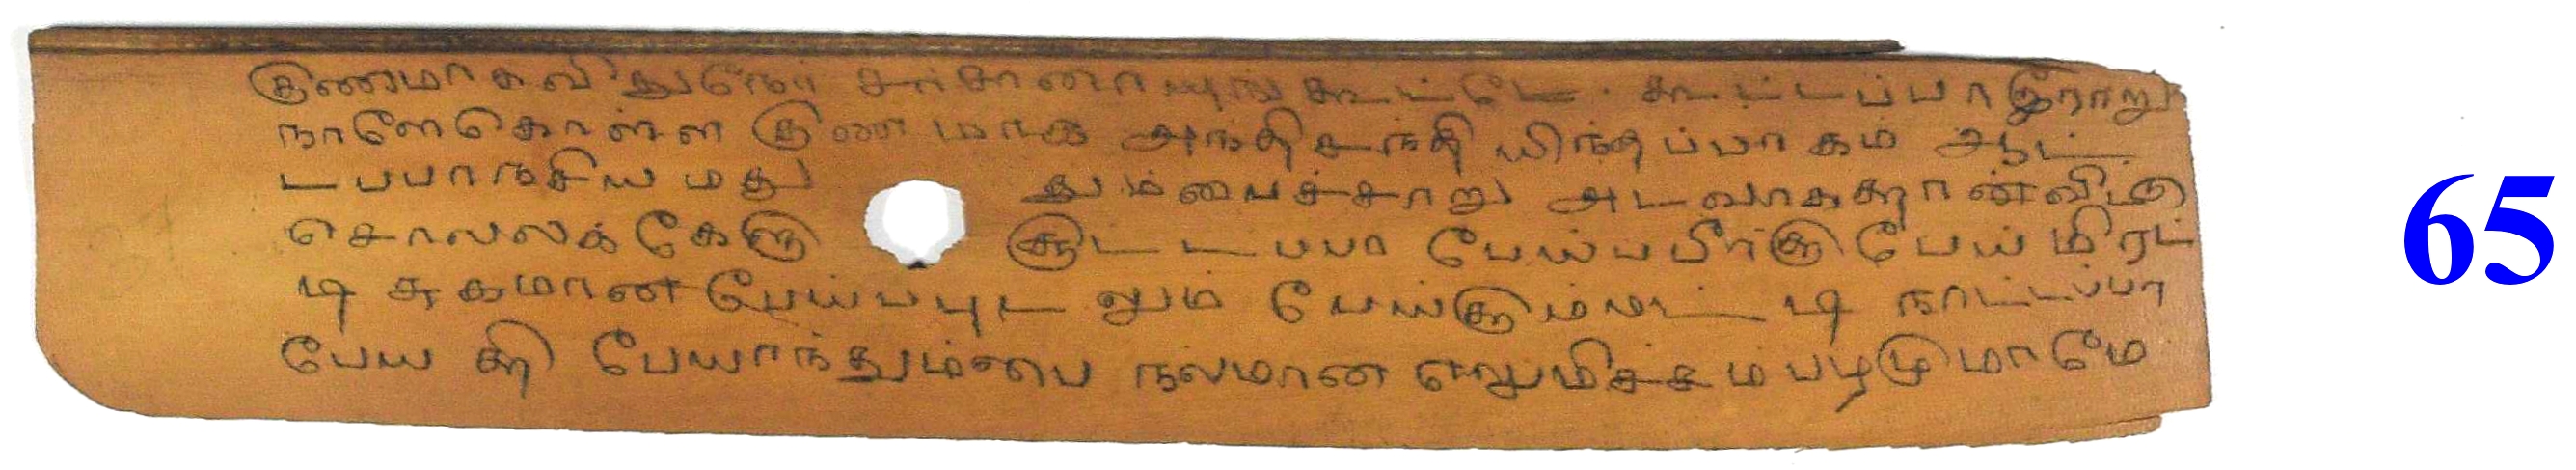 குணமாகவிதுநேர் சர்சானாயுங்கூட்டே கூட்டப்பாகுநாறு 65
நாளேகொள்ள குணமாக அந்திசந்தி யிந்தப்பாகம் ஆட்
டப்பாநசியமது தும்பைச்சாறு அடவாகதான்விடு
சொலலக்கேளு சூட்டப்பா பேய்ப்பீர்கு பேய்மிரட்
டி சுகமான பேய்ப்புடலும் பேய்கும்மட்டி நாட்டப்பா
பேய கரி பேயாந்தும்பை நலமான எலுமிச்சம்பழமுமாமே